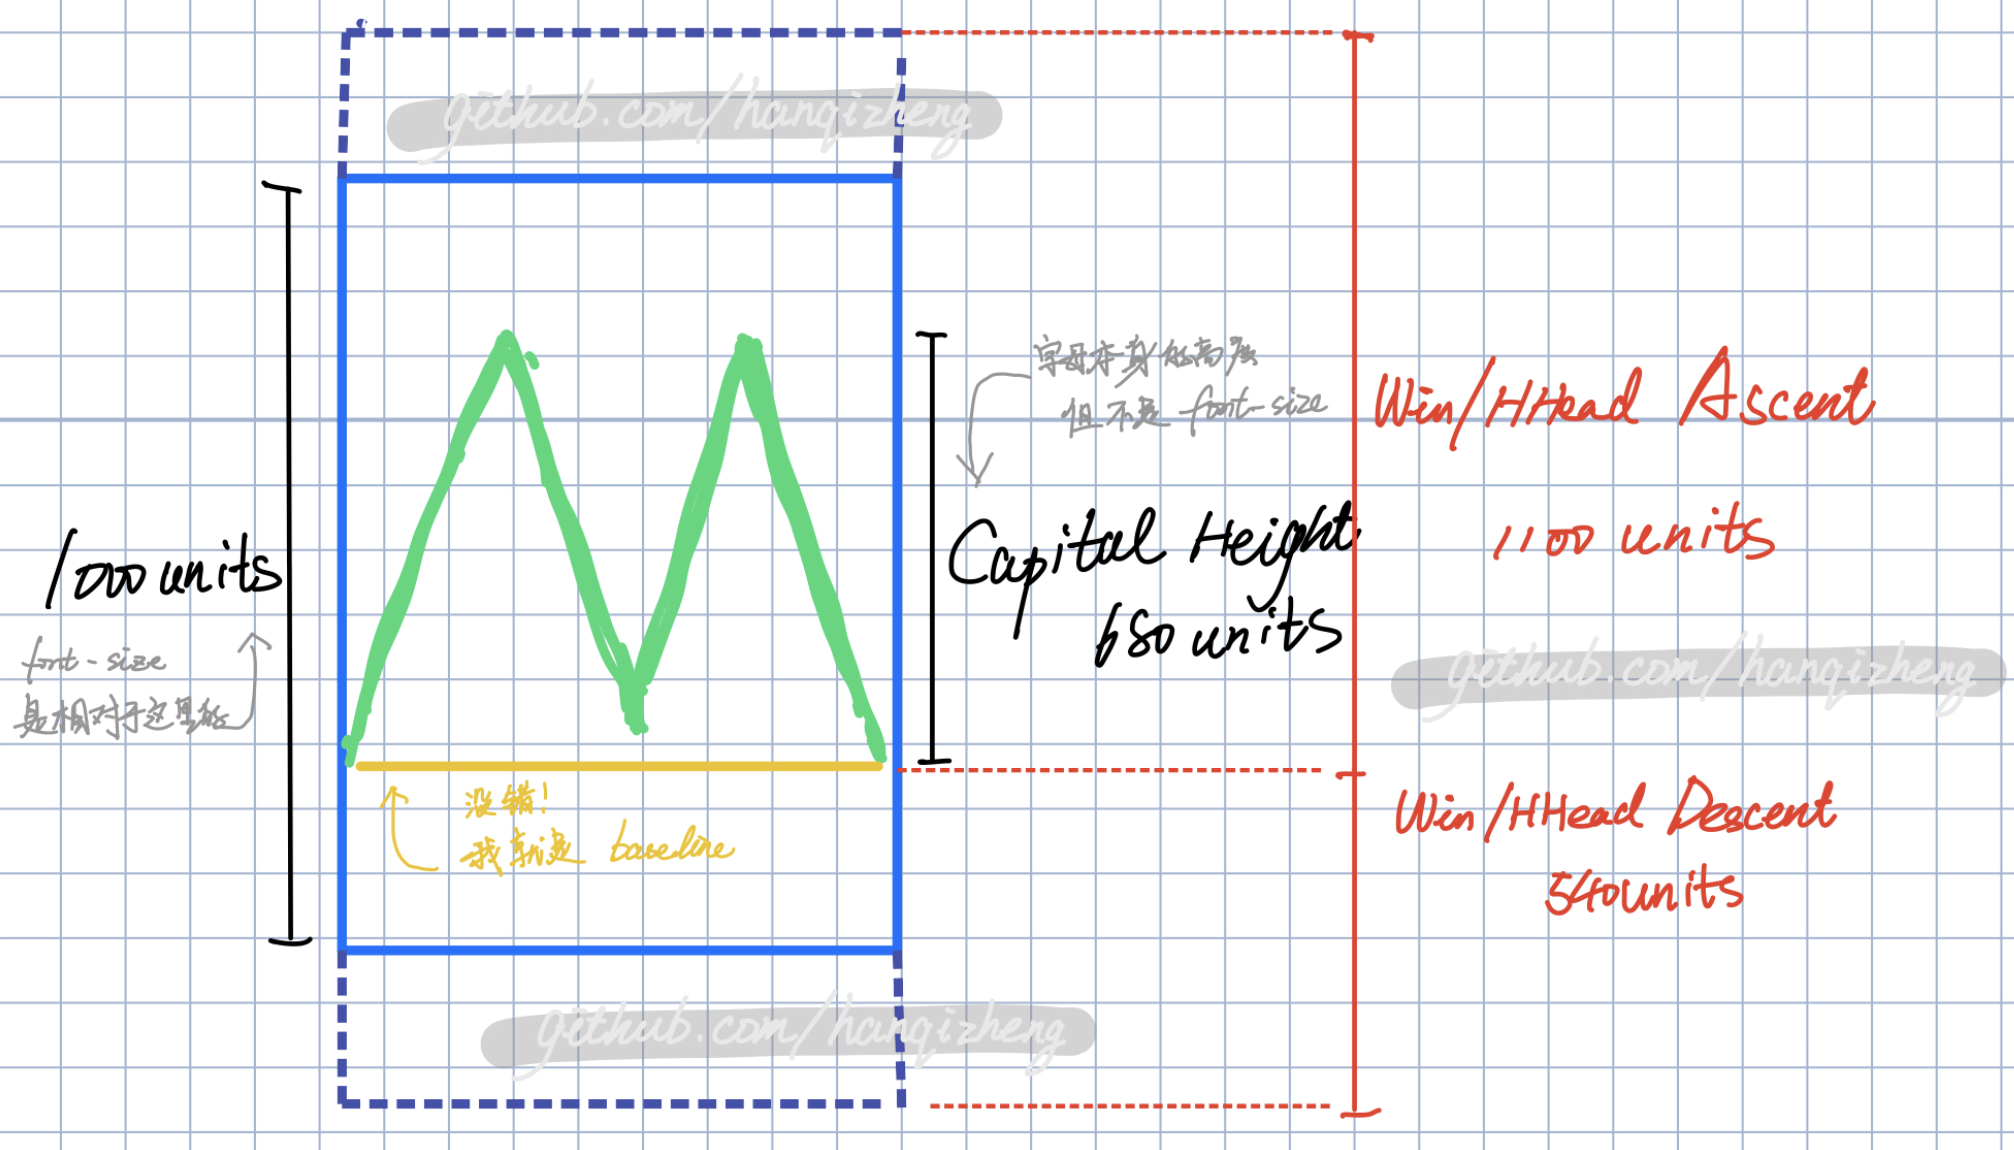 github.com/hanqizheng
1000 units
font-size
是相对于这里的
字母本身的高度
但不是 font-size
Capital Height
680 units
没错!
我就是 baseline
Win/HHead Ascent
1100 units
github.com/hanqizheng
Win/HHead Descent
540 units
github.com/hanqizheng